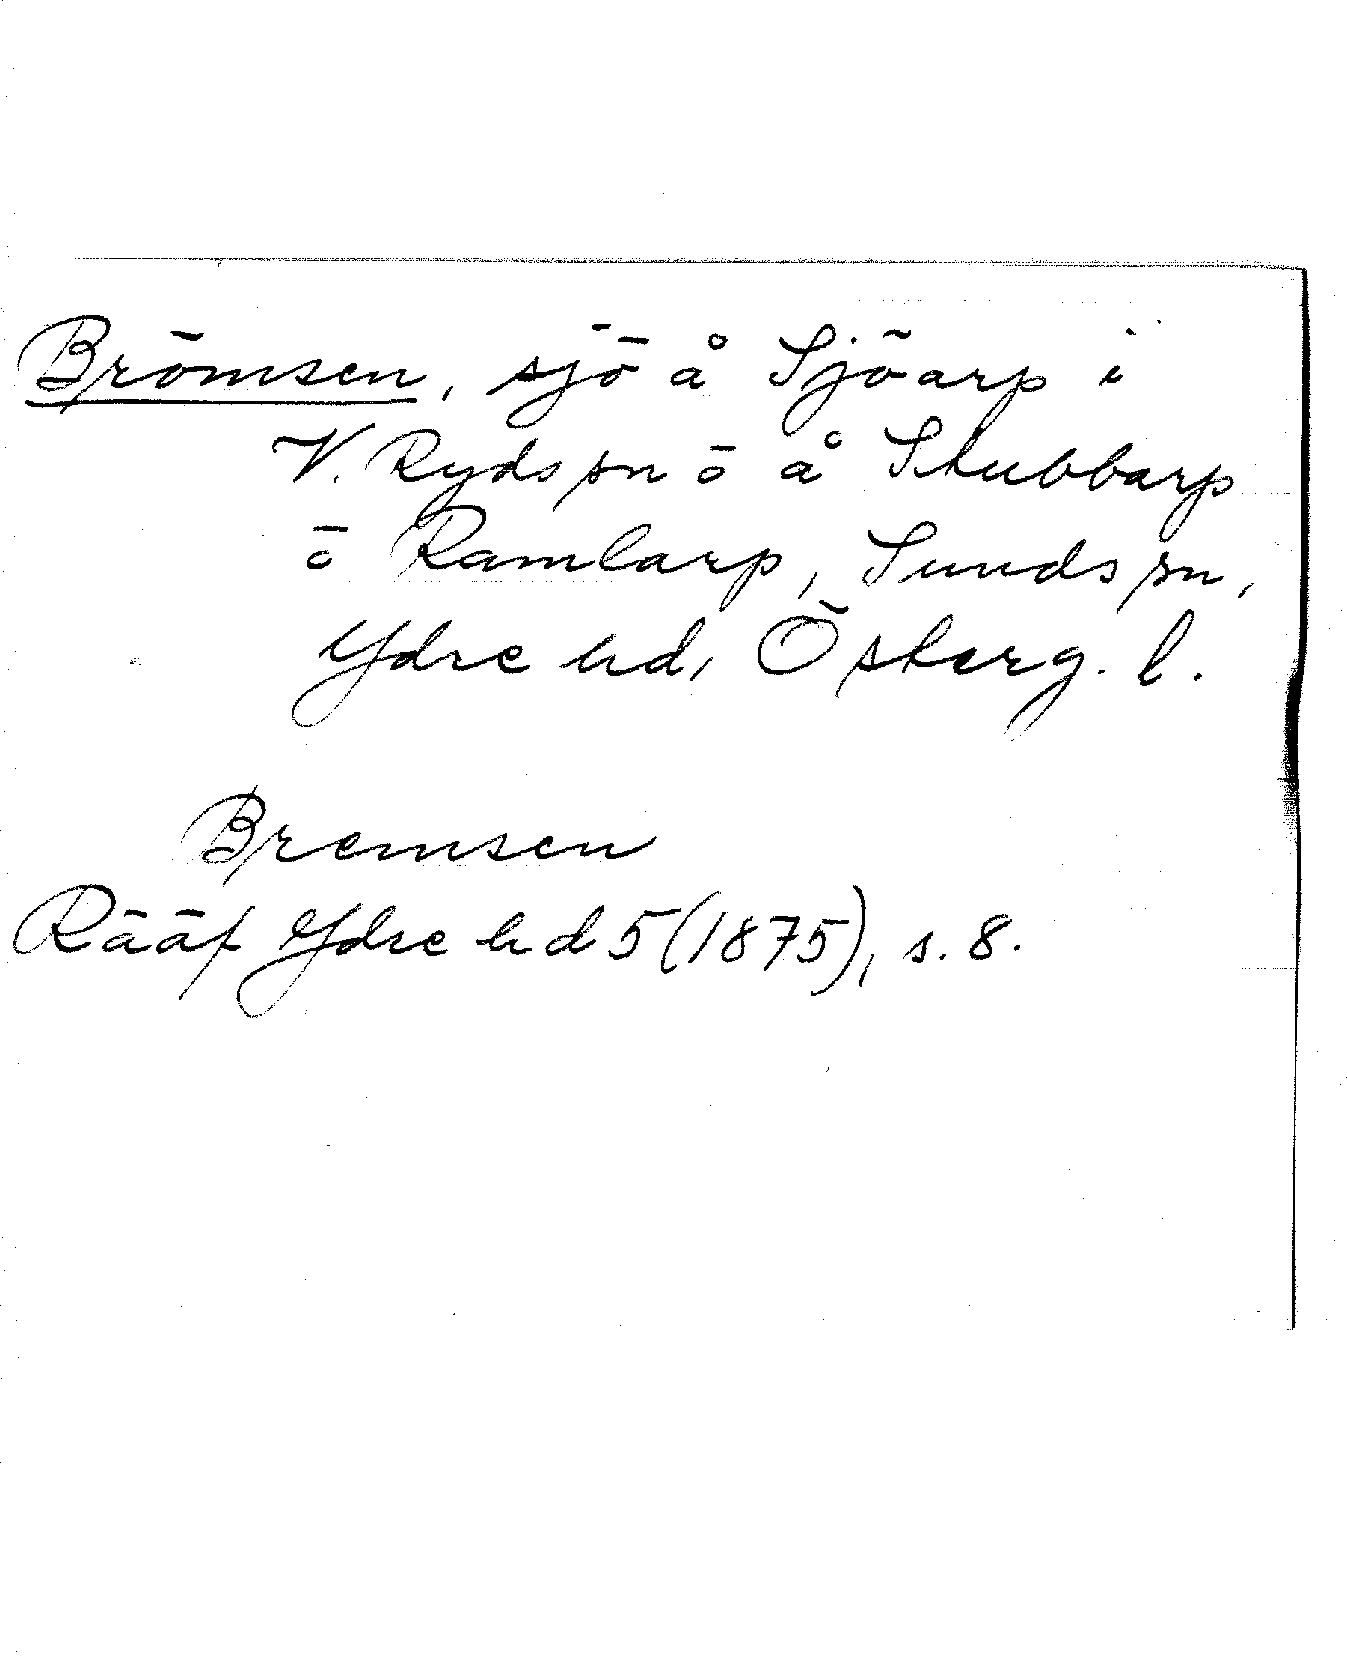 Brömsen, sjö å Sjöarp i
V. Ryds sn ö å Stubbarp
ö Ramlarp, Sunds sn,
Ydre hd, Österg. l.
Bremsen
Rääf Ydre hd 5 (1875), s. 8.